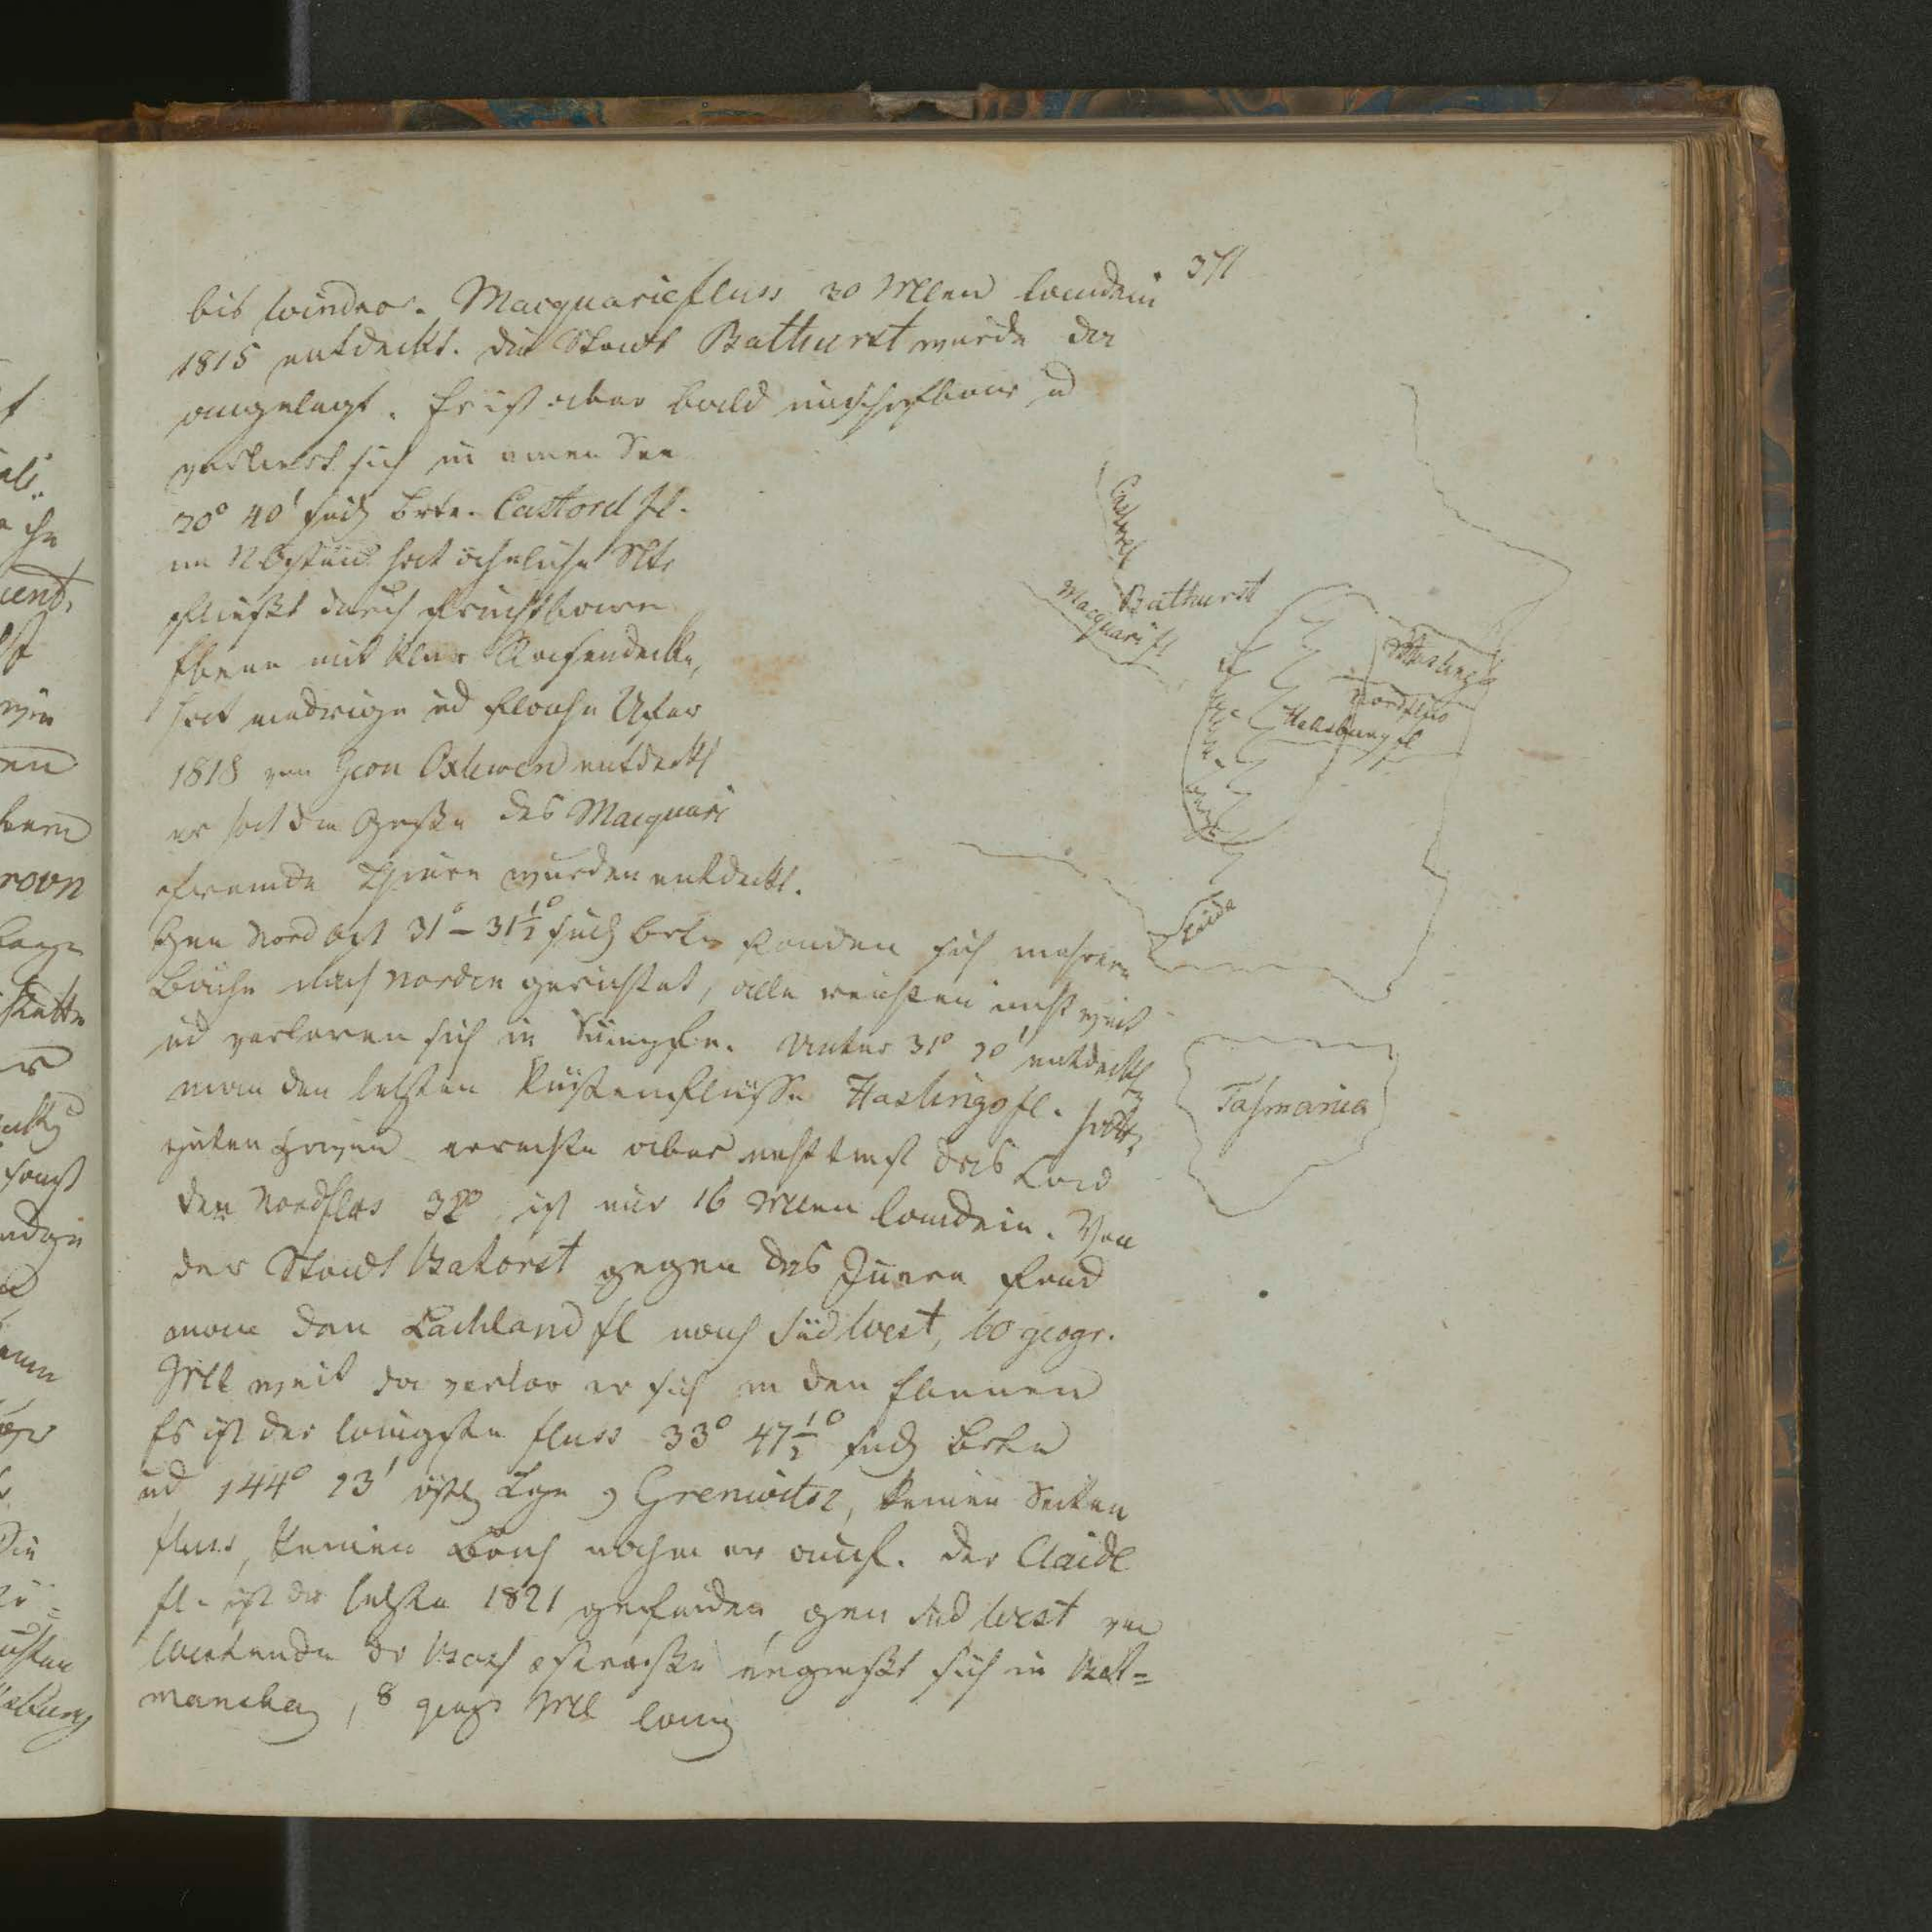 371
bis Windsor. Macquariefluss 30 Mlen landein
1815 entdeckt. die Stadt Bathurst wurde da
angelegt. Er ist aber bald unschiffbar ud
verliert sich in einen See
30° 40' südl Brte. Castord fl.
im NOsten hat ähnliche Rtg
fließt durch fruchtbare
Ebene mit Rasendecke,
hat niedrige ud flache Ufer
1818 von Oxlewen entdeckt
er hat die Größe des Macquari
fremde Thiere wurden entdeckt.
Gen Nord Ost 31° – 31½° südl Brte fanden sich mehrere
Bäche nach Norden gerichtet, alle reichten nicht weit
ud verloren sich in Sümpfe. Unter 31° 20' entdeckt
man den letzten Küstenflüsse Hastings fl. hatte
guten Hafen erreichte aber nicht das Land
den Nordflus 32° ist nur 16 Mlen landein. Von
der Stadt Batorst gegen das Innere fand
man den Lachland fl nach Süd West, 60 geogr.
Mll weit da verlor er sich in den Ebenen
Es ist der längste fluss 33° 47½° südl Brte
ud 144° 23' östl Lge v Grenwitsz, keinen Seiten
fluss, keinen Bach nahm er auf. der Claide
fl. ist der letzte 1821 gefunden gen Süd West von
der ergießt sich in Bat=
manbay, 8 geogr Mll lang
Castord
Bathurst
Macquari fl
Hastings
Nordflus
Haksburg fl
Claide
Tasmania